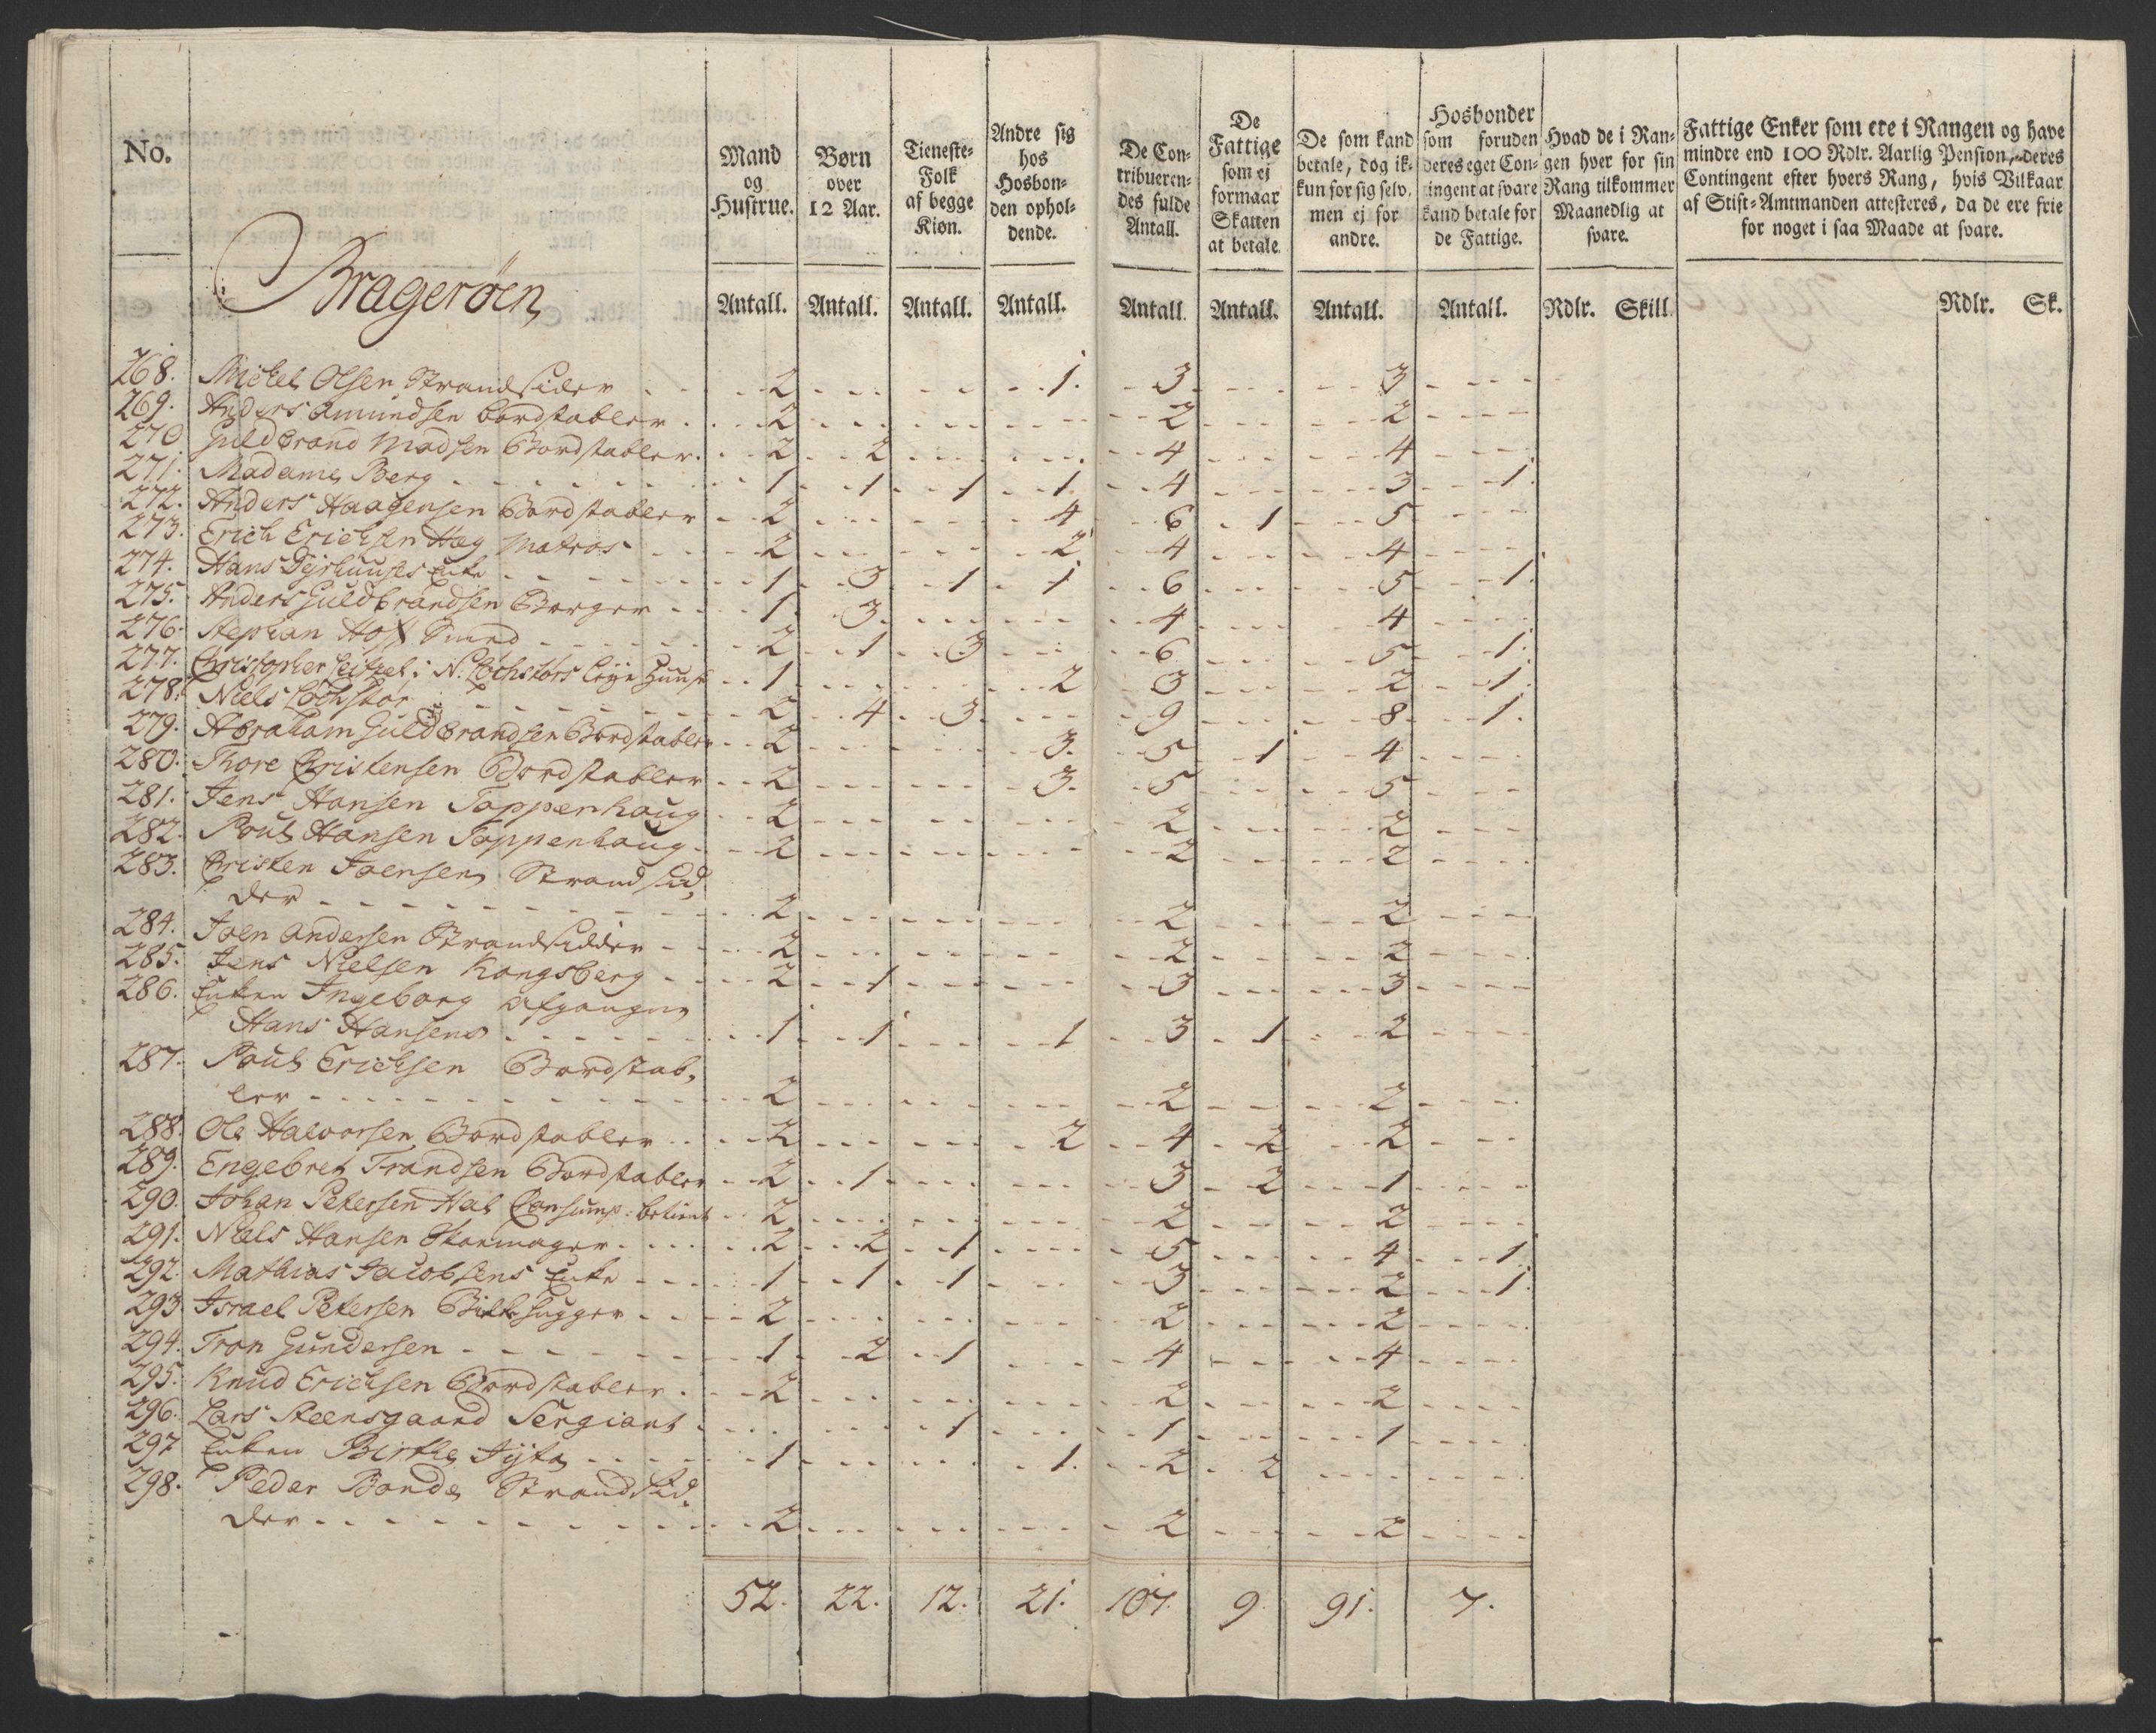 No.
Mand og Hustrue.
Børn over 12 Aar.
Tieneste-Folk af begge Kiøn.
Andre sig hos Hosbonden ophol-dende.
De Con-tribueren-des fulde Antall.
De Fattige som ej formaar Skatten at betale.
De som kand betale, dog ik-kun for sig selv, men ej for andre.
Hosbonder som foruden deres eget Con-tingent at svare kand betale for de Fattige.
Hvad de i Ran-gen hver for sin Rang tilkommer Maanedlig at svare.
Fattige Enker som ere i Rangen og have mindre end 100 Rdlr. Aarlig Pension, deres Contingent efter hvers Rang, hvis Vilkaar af Stift-Amtmanden attesteres, da de ere frie for noget i saa Maade at svare.
Bragerøen
Antall. Antall. Antall. Antall. Antall. Antall. Antall. Antall. Rdlr. Skill. Rdlr. Sk.
268. Mickel Olsen Strandsider 2 1. 3 3
269. Anders Amundsen bordstabler 2 2 2
270 Guldbrand Madsen Bordstabler 2 2 4 4
271. Madame Berg 1 1 1 1 4 3 1.
272. Anders Haagensen Bordstabler 2 4 6 1 5
273. Erich Erichsen Hæg Matros 2 2 4 4
274. Hans Enke 1 3 1 1 6 5 1.
275. Anders Guldbrandsen Borger 1 3 4 4
276. Stephan Hoff Smed 2 1 3 6 5 1.
277. Christopher i N. Lochstørs Leye Huuse 1 2 3 2 1.
278. Niels Lochstør 2 4 3 9 8 1.
279. Abraham Guldbrandsen Bordstabler 2 3. 5 1 4
280. Thore Christensen Bordstabler 2 3. 5 5
281. Jens Hansen Toppenhaug 2 2 2
282. Poul Hansen Toppenhaug 2 2 2
283. Christen Joensen Strandsid,
der 2 2 2
284. Joen Andersen Strandsidder 2 2 2
285. Jens Nielsen Kongsberg 2 1 3 3
286. Enken Ingeborg Afgangne
Hans Hansens 1 1 1 3 1 2
287. Poul Erichsen Bordstab,
ler 2 2 2
288. Ole Halvorsen Bordstabler 2 2 4 2 2
289. Engebret Trandsen Bordstabler 2 1 3 2 1
290. Johan Petersen Hal Consump: betient 2 2 2
291. Niels Hansen Skoemager 2 2 1 5 4 1
292. Mathias Jacobsens Enke 1 1 1 3 2 1.
293 Israel Petersen 2 2 2
294. Tron Gundersen 1 2 1 4 4
295. Knud Erichsen Bordstabler 2 2 2
296. Lars Steensgaard Sergiant 1 1 1
297 Enken Birthe 1 1. 2 2
298. Peder Bonde Strandsid,
der 2 2 2
52. 22. 12. 21. 107. 9. 91. 7.